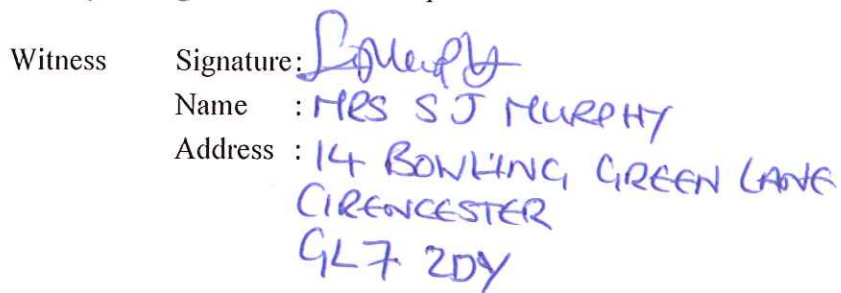 Witness Signature: SJMurphy
Name : MRS S J MURPHY
Address : 14 BOWLING GREEN LANE
CIRENCESTER
GL7 2DY